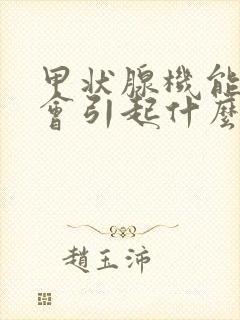 甲狀腺機能
會引起什麼
趙玉沛